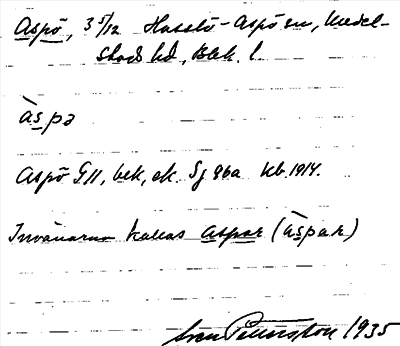 Aspö, 3 5/12 Hasslö-Aspö sn, Medel-
stads hd, Blek. l.
àspə
Aspö G11, bek, ek. Sj 86a Kb. 1914.
Invånarna kallas aspar (àspar)
Sven Pettersson 1935